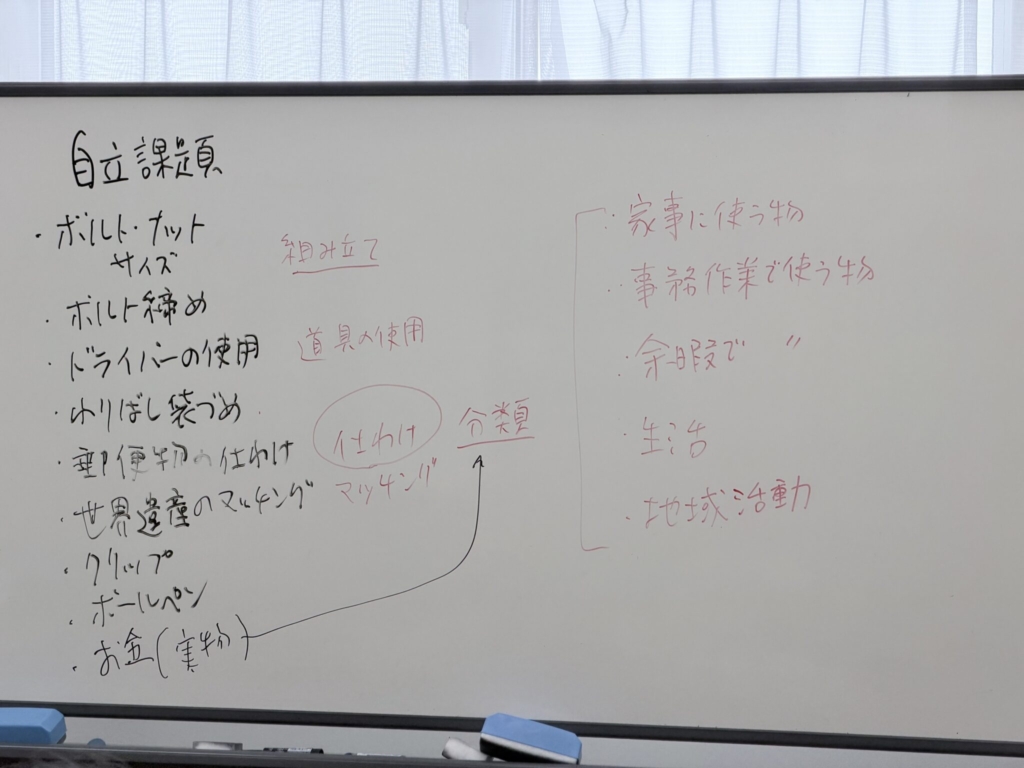 自立課題
・ボルト・ナット
サイズ
・ボルト締め
・ドライバーの使用
・わりばし袋づめ
・郵便物の仕わけ
・世界遺産のマッチング
・クリップ
・ボールペン
・お金(実物)
組み立て
道具の使用
仕わけ 分類
マッチング
・家事に使う物
・事務作業で使う物
・余暇で 〃
・生活
・地域活動